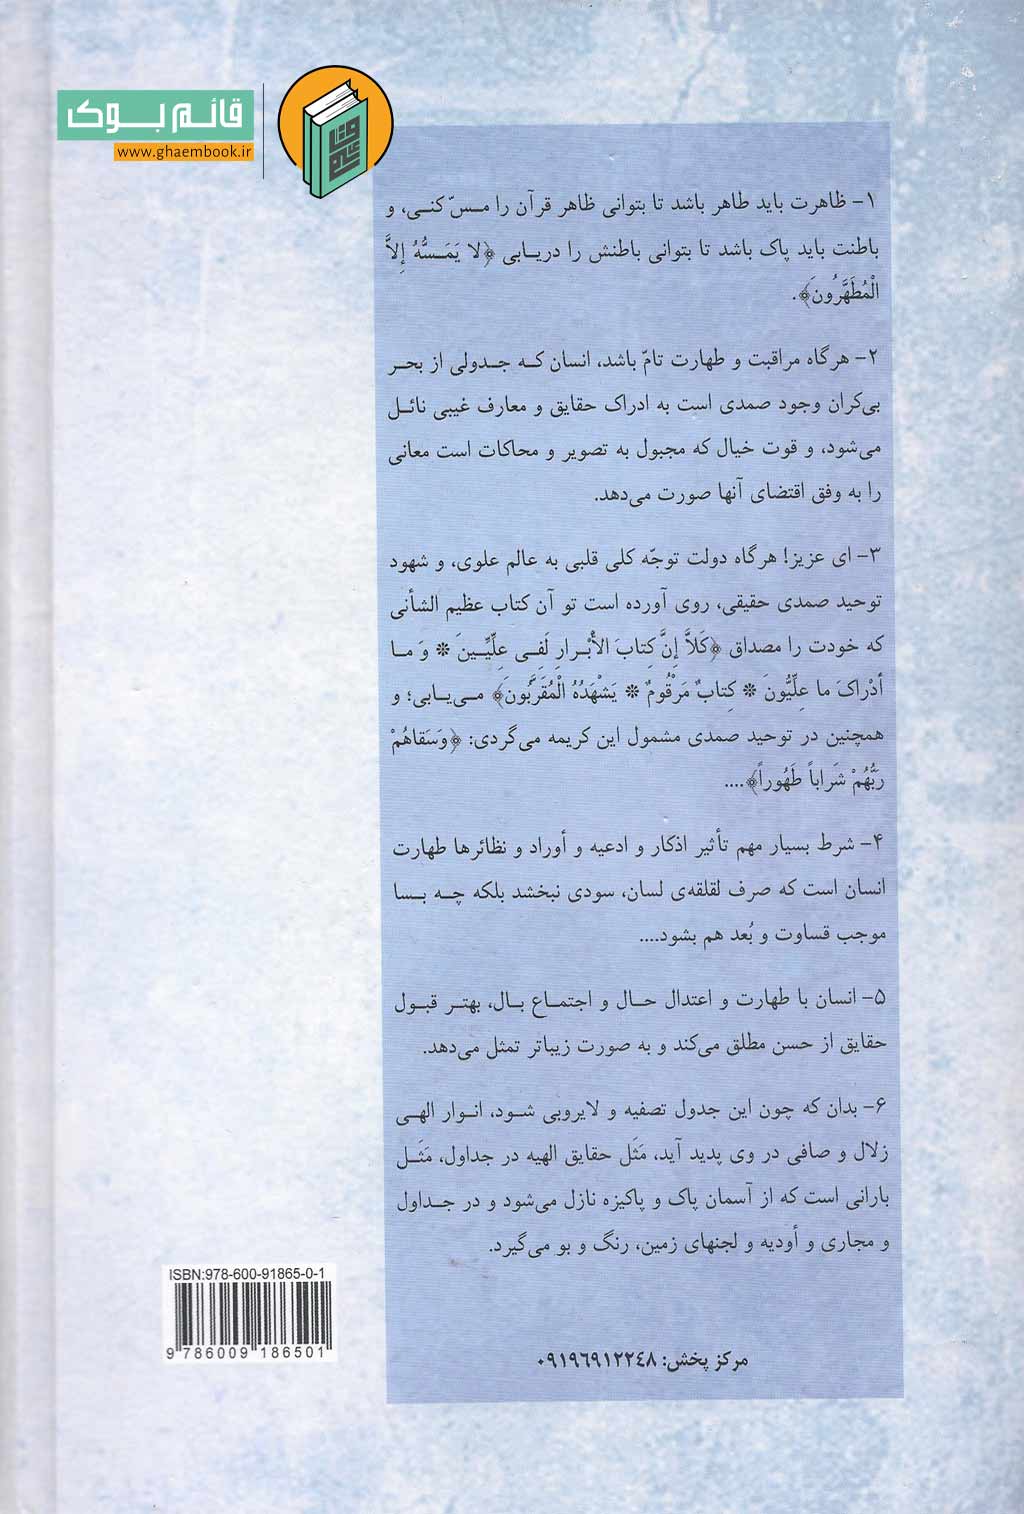 قائم بوک
www.ghaembook.ir
۱- ظاهرت باید طاهر باشد تا بتوانی ظاهر قرآن را مسّ کنی، و
باطنت باید پاک باشد تا بتوانی باطنش را دریابی ﴿لا یَمَسُّهُ إلاَّ
الْمُطَهَّرُونَ﴾.
۲- هرگاه مراقبت و طهارت تامّ باشد، انسان که جدولی از بحر
بی‌کران وجود صمدی است به ادراک حقایق و معارف غیبی نائل
می‌شود، و قوت خیال که مجبول به تصویر و محاکات است معانی
را به وفق اقتضای آنها صورت می‌دهد.
۳- ای عزیز! هرگاه دولت توجّه کلی قلبی به عالم علوی، و شهود
توحید صمدی حقیقی، روی آورده است تو آن کتاب عظیم الشأنی
که خودت را مصداق ﴿کَلاَّ إِنَّ کِتابَ الأَبْرارِ لَفِی عِلِّیِّینَ * وَ ما
أدْراکَ ما عِلِّیُّونَ * کِتابٌ مَرْقُومٌ * یَشْهَدُهُ الْمُقَرَّبُونَ﴾ می‌یابی؛ و
همچنین در توحید صمدی مشمول این کریمه می‌گردی: ﴿وَسَقاهُمْ
رَبُّهُمْ شَراباً طَهُوراً﴾....
۴- شرط بسیار مهم تأثیر اذکار و ادعیه و أوراد و نظائرها طهارت
انسان است که صرف لقلقه‌ی لسان، سودی نبخشد بلکه چه بسا
موجب قساوت و بُعد هم بشود....
۵- انسان با طهارت و اعتدال حال و اجتماع بال، بهتر قبول
حقایق از حسن مطلق می‌کند و به صورت زیباتر تمثل می‌دهد.
۶- بدان که چون این جدول تصفیه و لایروبی شود، انوار الهی
زلال و صافی در وی پدید آید، مَثَل حقایق الهیه در جداول، مَثَل
بارانی است که از آسمان پاک و پاکیزه نازل می‌شود و در جداول
و مجاری و أودیه و لجنهای زمین، رنگ و بو می‌گیرد.
ISBN:978-600-91865-0-1
9 786009 186501
مرکز پخش: ۰۹۱۹۶۹۱۲۲۴۸